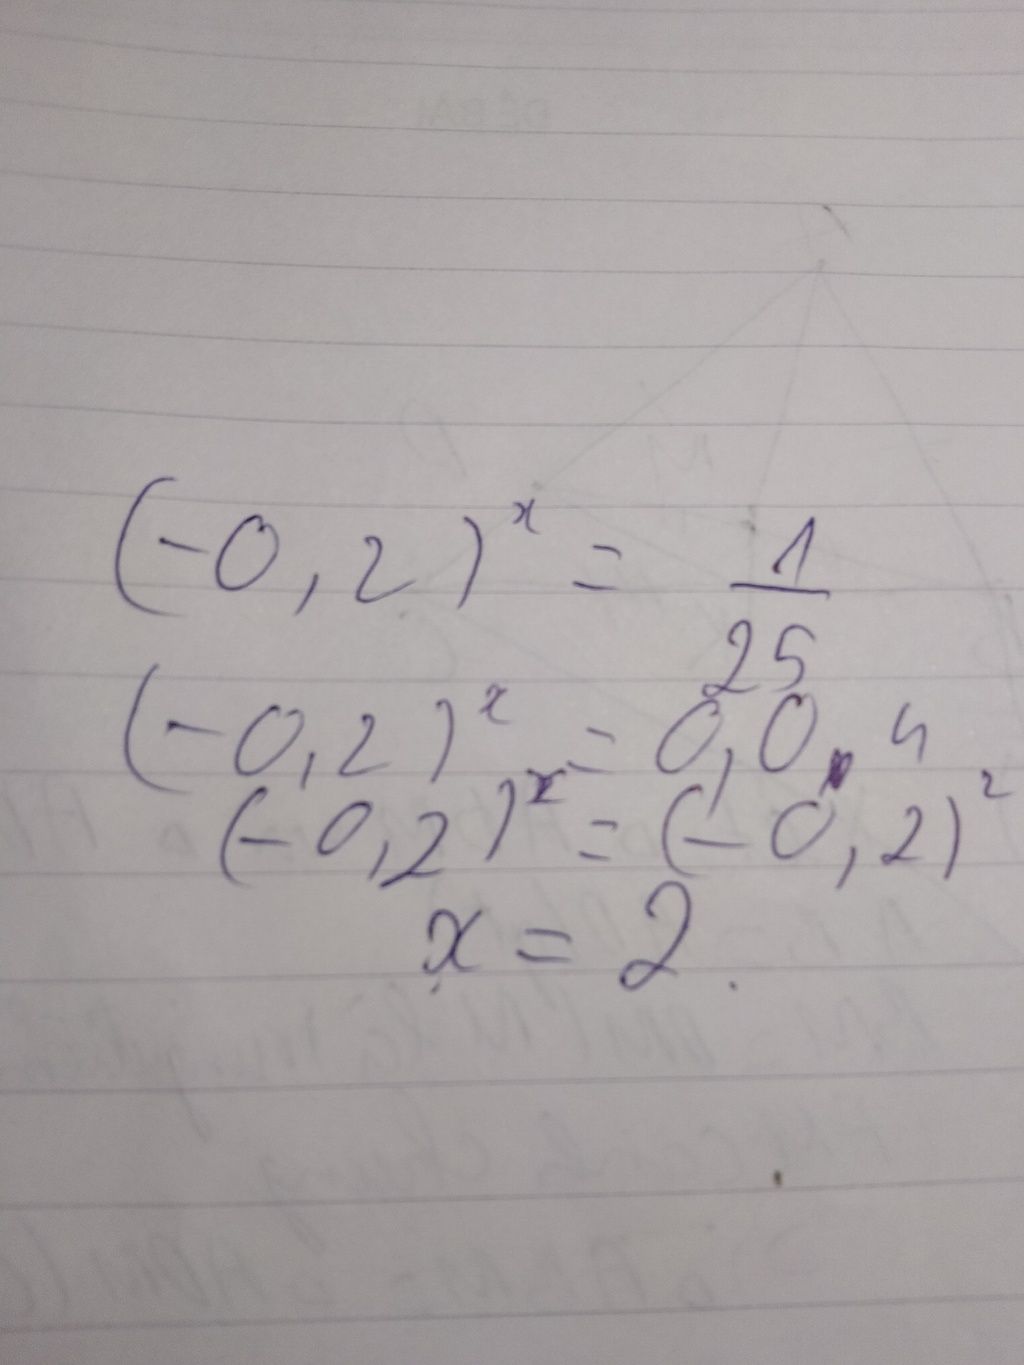 (-0,2)^x = 1/25
(-0,2)^x = 0,04
(-0,2)^x = (-0,2)^2
x = 2.